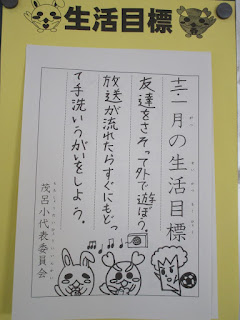 生活目標
十二・一月の生活目標
友達をさそって外で遊ぼう。
放送が流れたらすぐにもどっ
て手洗いうがいをしよう。
茂呂小代表委員会